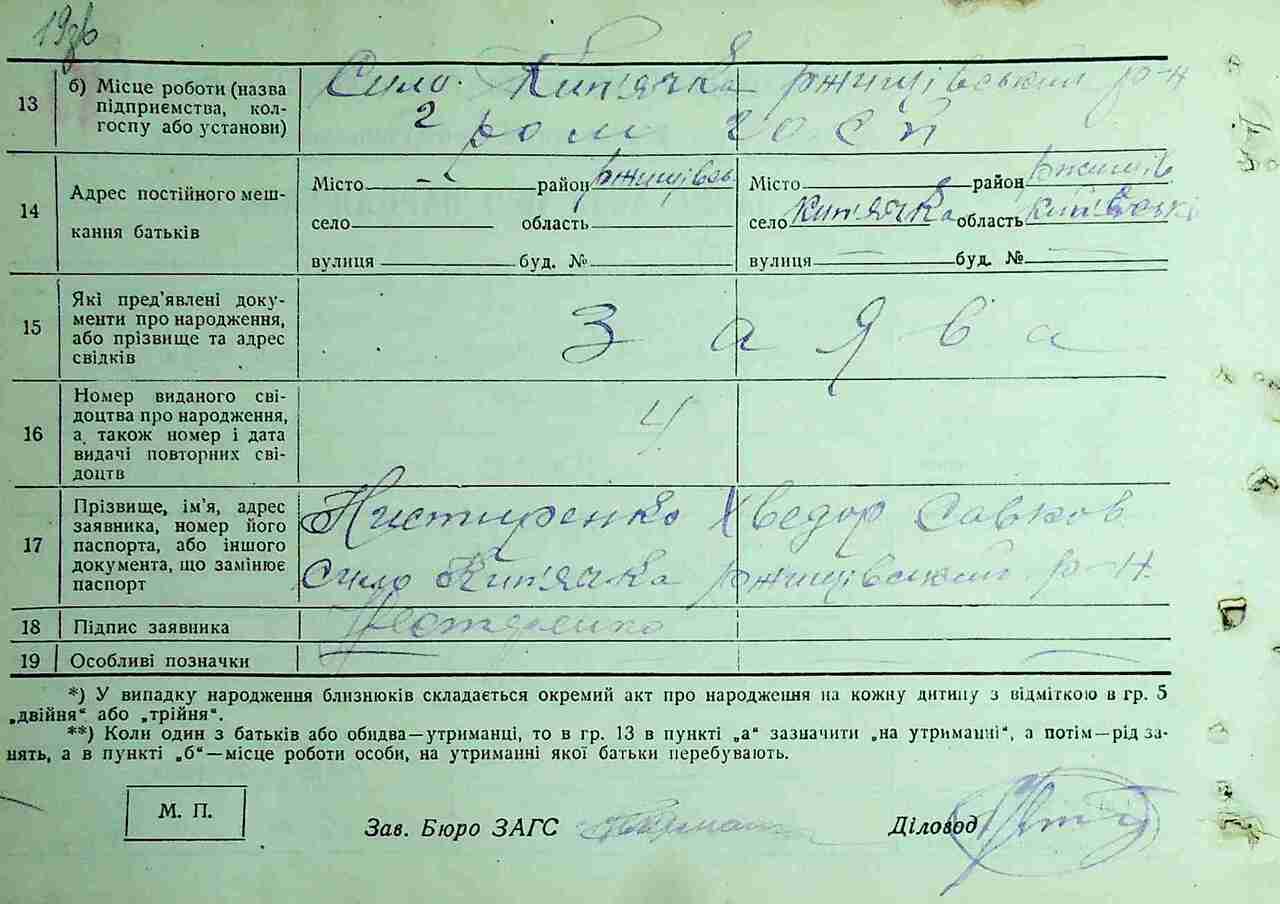 193б
13 б) Місце роботи (назва підприємства, колгоспу або установи) Сило Кип'ячка ржищівський р-н
гром госп
14 Адрес постійного мешкання батьків
Місто — район ржищівсь Місто район ржищів
село область село Кип'ячка область київські
вулиця буд. № вулиця — буд. № —
15 Які пред'явлені документи про народження, або прізвище та адрес свідків Заява
16 Номер виданого свідоцтва про народження, а також номер і дата видачі повторних свідоцтв 4
17 Прізвище, ім'я, адрес заявника, номер його паспорта, або іншого документа, що замінює паспорт Нистиренко Хведор Савков
Сило Кип'ячка ржищівський р-н.
18 Підпис заявника Нестеренко
19 Особливі позначки
*) У випадку народження близнюків складається окремий акт про народження на кожну дитину з відміткою в гр. 5
„двійня“ або „трійня“.
**) Коли один з батьків або обидва—утриманці, то в гр. 13 в пункті „а“ зазначити „на утриманні“, а потім—рід за-
нять, а в пункті „б“—місце роботи особи, на утриманні якої батьки перебувають.
М. П.
Зав. Бюро ЗАГС Діловод